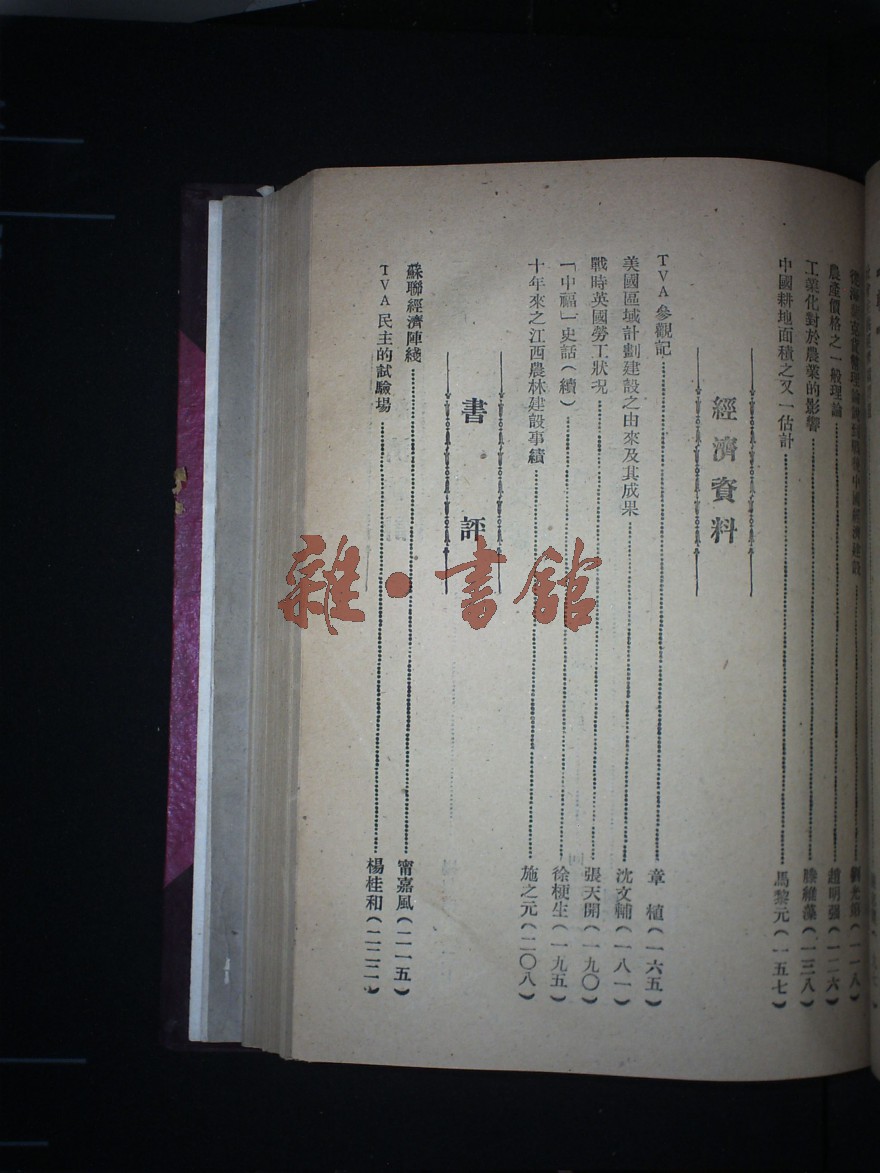 農產價格之一般理論 趙明強(一二六)
工業化對於農業的影響 滕維藻(一三八)
中國耕地面積之又一估計 馬黎元(一五七)
經濟資料
TVA參觀記 章植(一六五)
美國區域計劃建設之由來及其成果 沈文輔(一八一)
戰時英國勞工狀況 張天開(一九〇)
「中福」史話(續) 徐梗生(一九五)
十年來之江西農林建設事績 施之元(二〇八)
書評
蘇聯經濟陣綫 甯嘉風(二一五)
TVA民主的試驗場 楊桂和(二二二)
雜·書館